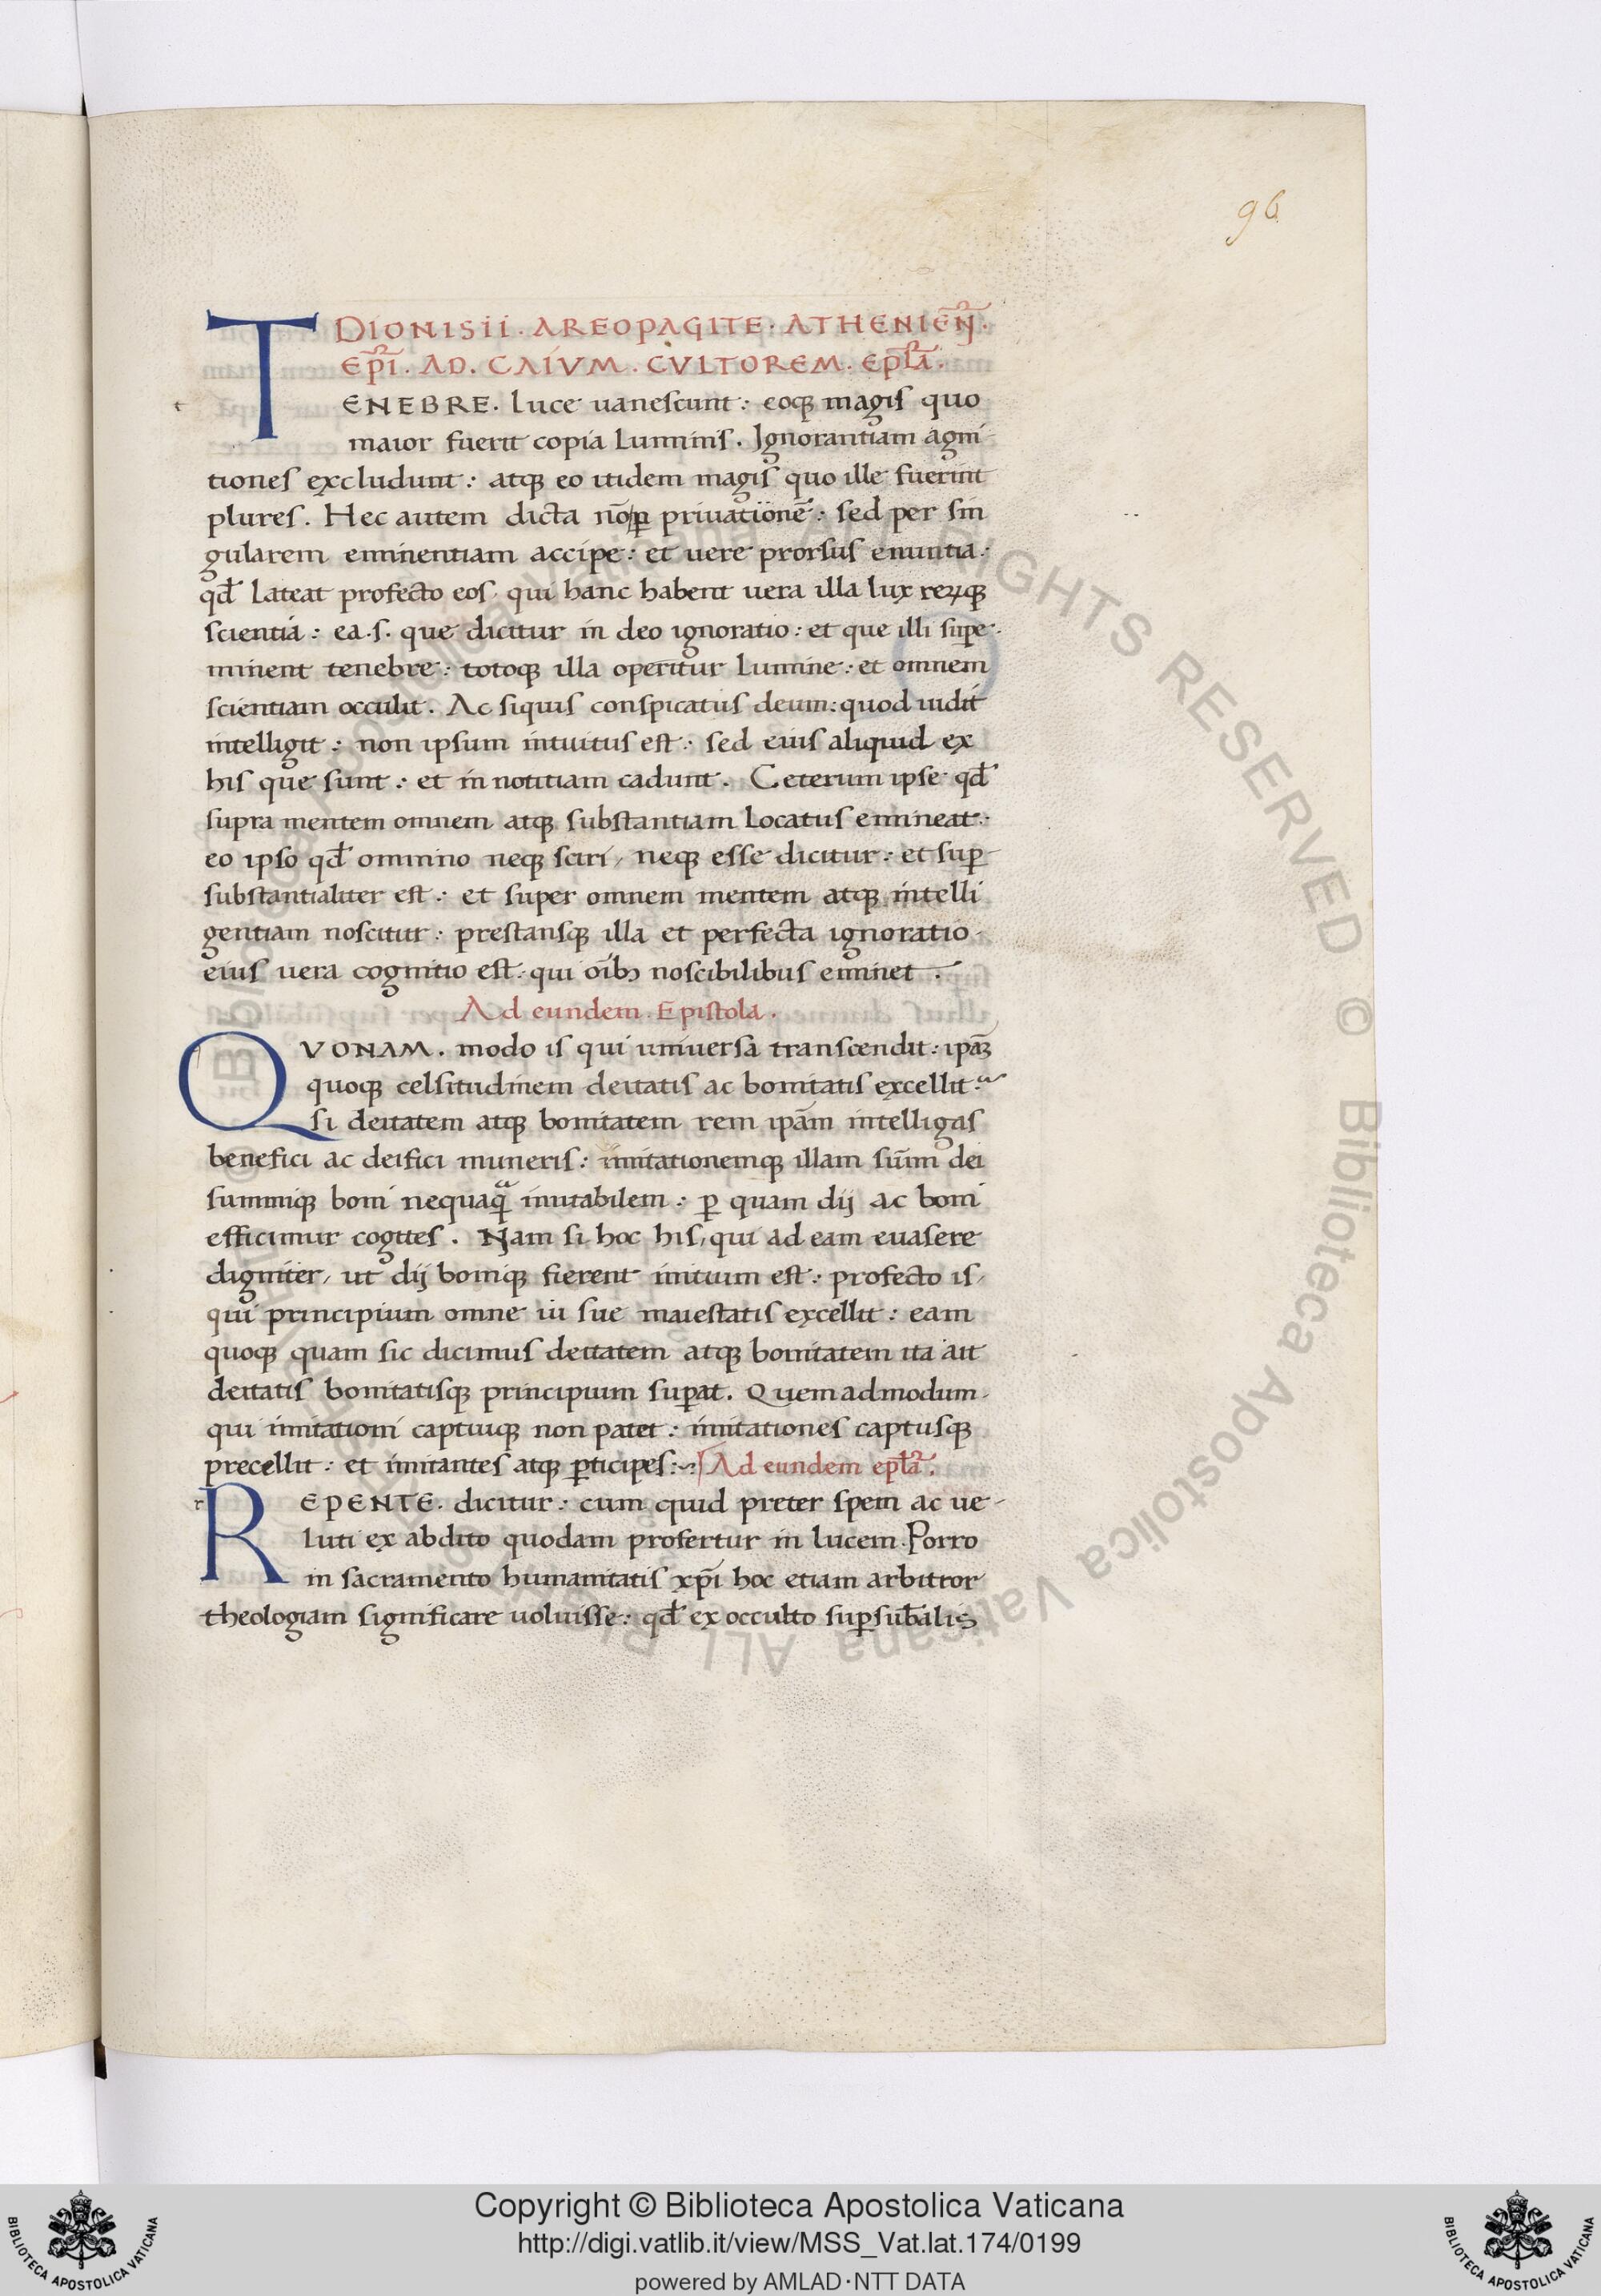 96
DIONISII. AREOPAGITE. ATHENIEN̄.
EPĪ. AD. CAIVM. CVLTOREM. EPL̄A.
TENEBRE. luce uanescunt: eoqꝫ magis quo
maior fuerit copia Luminis. Ignorantiam agni-
tiones excludunt: atqꝫ eo itidem magis quo ille fuerint
plures. Hec autem dicta nō ꝑ priuationē: sed per sin
gularem eminentiam accipe: et uere prorsus enuntia:
qđ Lateat profecto eos, qui hanc habent uera illa lux reꝝqꝫ
scientia: ea.s. que dicitur in deo ignoratio: et que illi suꝑe-
minent tenebre: totoqꝫ illa operitur Lumine: et omnem
scientiam occulit. Ac siquis conspicatus deum: quod uidit
intelligit: non ipsum intuitus est: sed eius aliquid ex
his que sunt: et in notitiam cadunt. Ceterum ipse qđ
supra mentem omnem atqꝫ substantiam Locatus emineat:
eo ipso qđ omnino neqꝫ sciri, neqꝫ esse dicitur: et suꝑ-
substantialiter est: et super omnem mentem atqꝫ intelli
gentiam noscitur: prestansqꝫ illa et perfecta ignoratio
eius uera cognitio est: qui oīb; noscibilibus eminet.
Ad eundem. Epistola.
QVONAM. modo is qui uniuersa transcendit: ipāꝫ
quoqꝫ celsitudinem deitatis ac bonitatis excellit:
si deitatem atqꝫ bonitatem rem ipām intelligas
benefici ac deifici muneris: imitationemqꝫ illam sūm dei
summiqꝫ boni nequaqᷓ imitabilem: ꝑ quam dij ac boni
efficimur cogites. Nam si hoc his, qui ad eam euasere
digniter, ut dij boniqꝫ fierent initium est: profecto is,
qui principium omne iu sue maiestatis excellit: eam
quoqꝫ quam sic dicimus deitatem atqꝫ bonitatem ita ait
deitatis bonitatisqꝫ principium suꝑat. Quemadmodum
qui imitationi captuiqꝫ non patet: imitationes captusqꝫ
precellit: et imitantes atqꝫ ꝑticipes: Ad eundem epl̄a.
REPENTE. dicitur: cum quid preter spem ac ue-
luti ex abdito quodam profertur in lucem. Porro
in sacramento humanitatis xp̄i hoc etiam arbitror
theologiam significare uoluisse: qđ ex occulto suꝑsub̄alis
Copyright © Biblioteca Apostolica Vaticana
http://digi.vatlib.it/view/MSS_Vat.lat.174/0199
powered by AMLAD·NTT DATA
BIBLIOTECA APOSTOLICA VATICANA
BIBLIOTECA APOSTOLICA VATICANA
© Biblioteca Apostolica Vaticana ALL RIGHTS RESERVED © Biblioteca Apostolica Vaticana ALL RIGHTS RESERVED